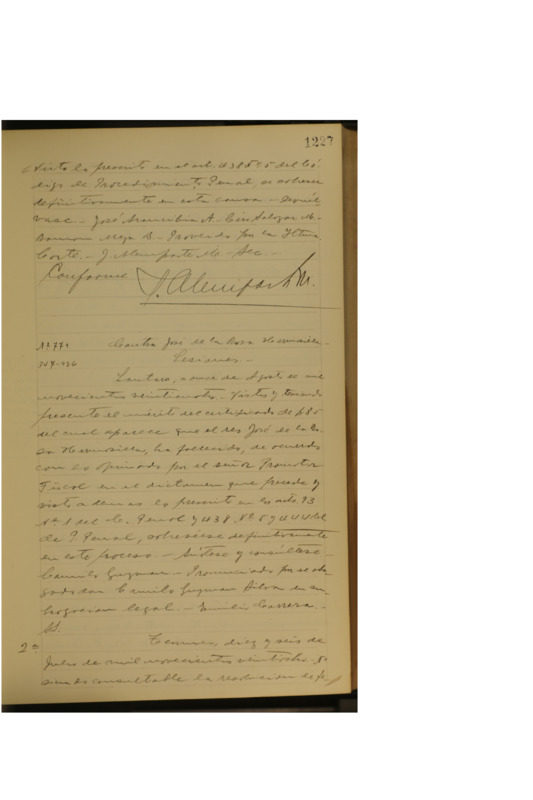 1227
visto lo presento en el art. 438 Nº 5 del Có-
digo de Procedimiento Penal, se sobresee
definitivamente en esta causa. - Devuél-
vase. - José Aramibia A. - Ciro Salazar M. -
Mega B. - Proveido por la Iltma.
Corte. - J. Alemparte M. - Sec. -
Conforme J. Alemparte M.
Nº 774
Contra José de la Rosa Hermosilla. -
Lesiones. -
Lautaro, a once de Agosto de mil
novecientos veintiocho. - Vistos y teniendo
presente el mérito del certificado de p. 85
del cual aparece que el reo José de la Ro-
sa Hermosilla, ha fallecido, de acuerdo
con lo opinado por el señor Promotor
Fiscal en el dictamen que precede y
visto además lo presento en los arts. 93
Nº 1 del C. Penal y 438 Nº 5 y 444 del
de P. Penal, sobreseese definitivamente
en este proceso. - Cítese y consúltese. -
Camilo Guzman. - Pronunciado por el abo-
gado don Camilo Guzman Silva en su-
brogacion legal. - Emilio Carrera. -
SS.
2ª
Temuco, diez y seis de
Julio de mil novecientos veintiocho. No
siendo consultable la resolucion de fs.